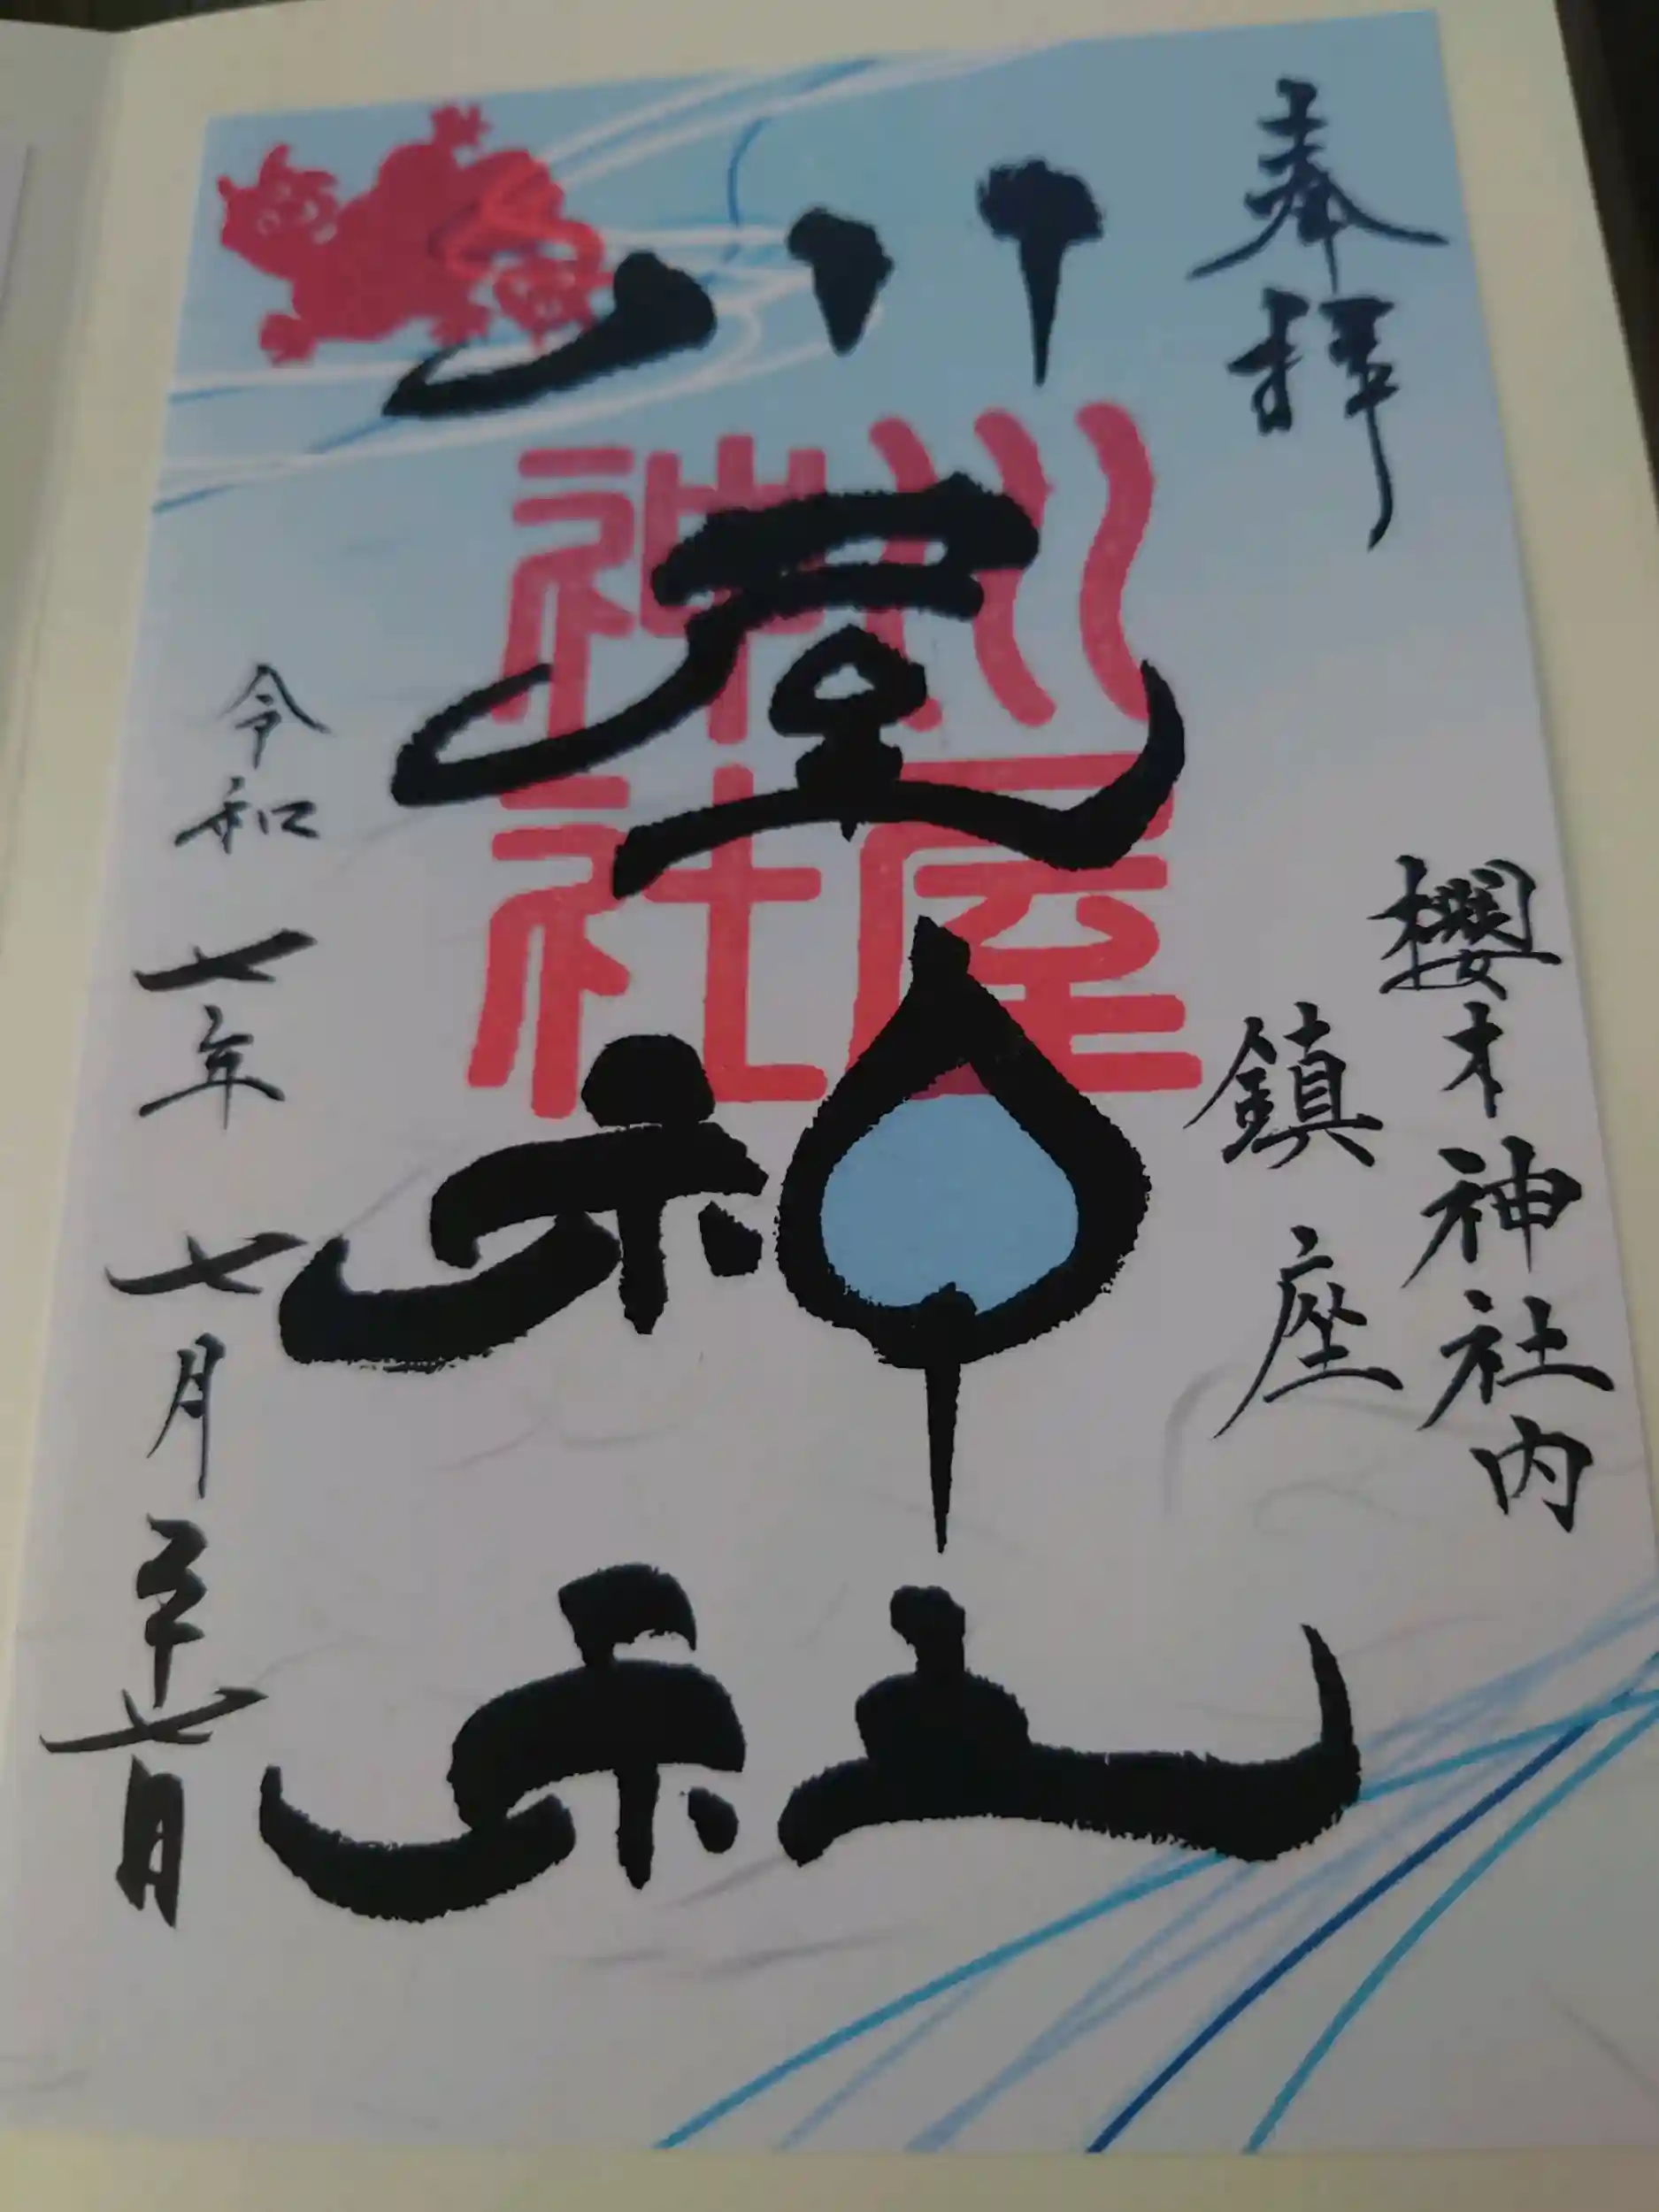 奉拝
櫻木神社内
鎮座
川屋神社
川屋
神社
令和七年七月二十七日